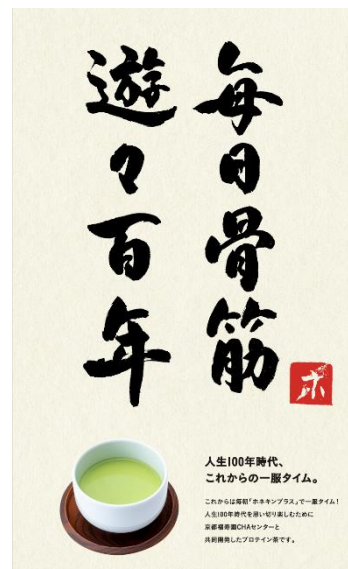 毎日骨筋
遊々百年
ホ
人生100年時代、
これからの一服タイム。
これからは毎朝『ホネキンプラス』で一服タイム！
人生100年時代を思い切り楽しむために
京都福寿園CHAセンターと
共同開発したプロテイン茶です。